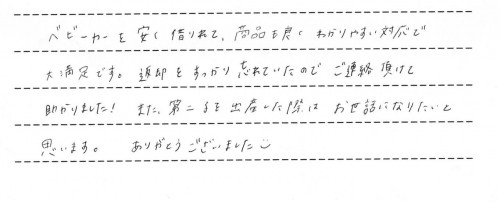 ベビーカーを安く借りれて、商品も良くわかりやすい対応で
大満足です。返却をすっかり忘れていたのでご連絡頂けて
助かりました！また、第二子を出産した際はお世話になりたいと
思います。ありがとうございました